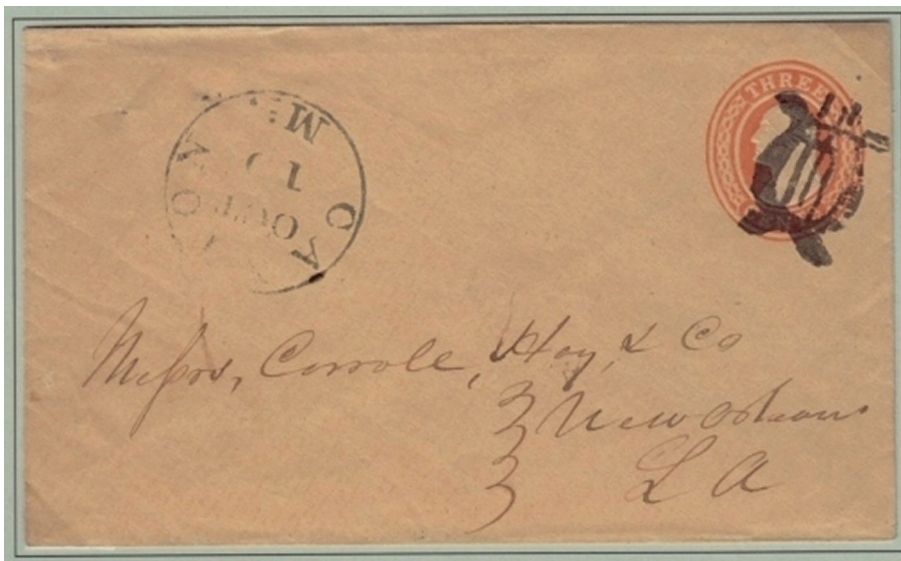 THREE
OCT
10
Messrs, Carrole, Hoy, & Co
New Orleans
LA